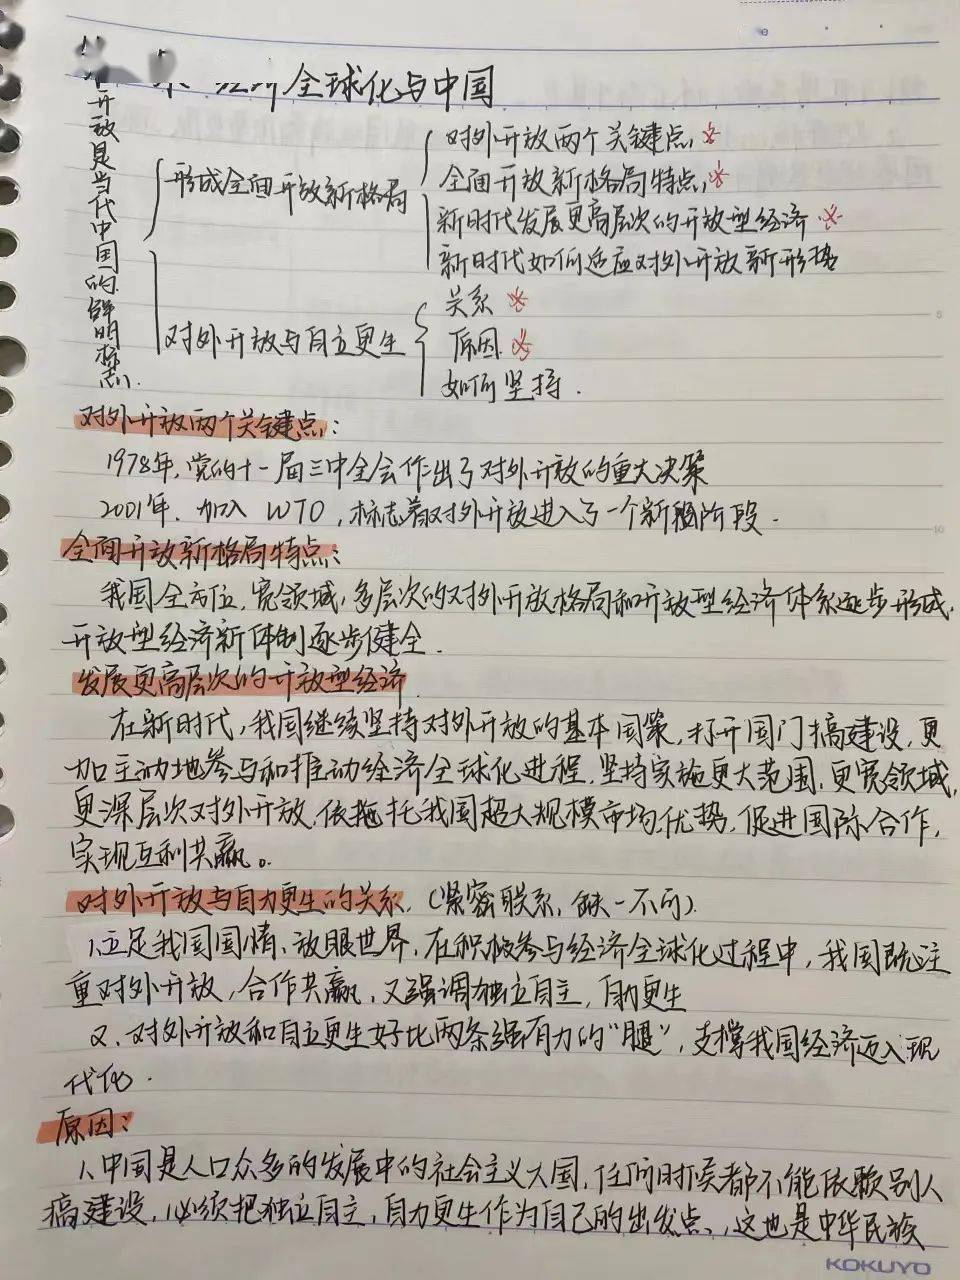 经济全球化与中国
开放是当代中国的鲜明标志.
形成全面开放新格局
对外开放两个关键点
全面开放新格局特点
新时代发展更高层次的开放型经济
新时代如何适应对外开放新形势
对外开放与自立更生
关系
原因
如何坚持.
对外开放两个关键点:
1978年,党的十一届三中全会作出了对外开放的重大决策
2001年.加入WTO,标志着对外开放进入了一个新阶段.
全面开放新格局特点:
我国全方位,宽领域,多层次的对外开放格局和开放型经济体系逐步形成,
开放型经济新体制逐步健全.
发展更高层次的开放型经济
在新时代,我国继续坚持对外开放的基本国策,打开国门搞建设,更
加主动地参与和推动经济全球化进程,坚持实施更大范围,更宽领域,
更深层次对外开放,依托我国超大规模市场优势,促进国际合作,
实现互利共赢。
对外开放与自力更生的关系.(紧密联系,缺一不可).
1.立足我国国情、放眼世界,在积极参与经济全球化过程中,我国既注
重对外开放,合作共赢,又强调独立自主,自力更生
2.对外开放和自立更生好比两条强有力的“腿”,支撑我国经济迈入现
代化.
原因:
1、中国是人口众多的发展中的社会主义大国,任何时候都不能依赖别人
搞建设,必须把独立自主,自力更生作为自己的出发点、,这也是中华民族
KOKUYO